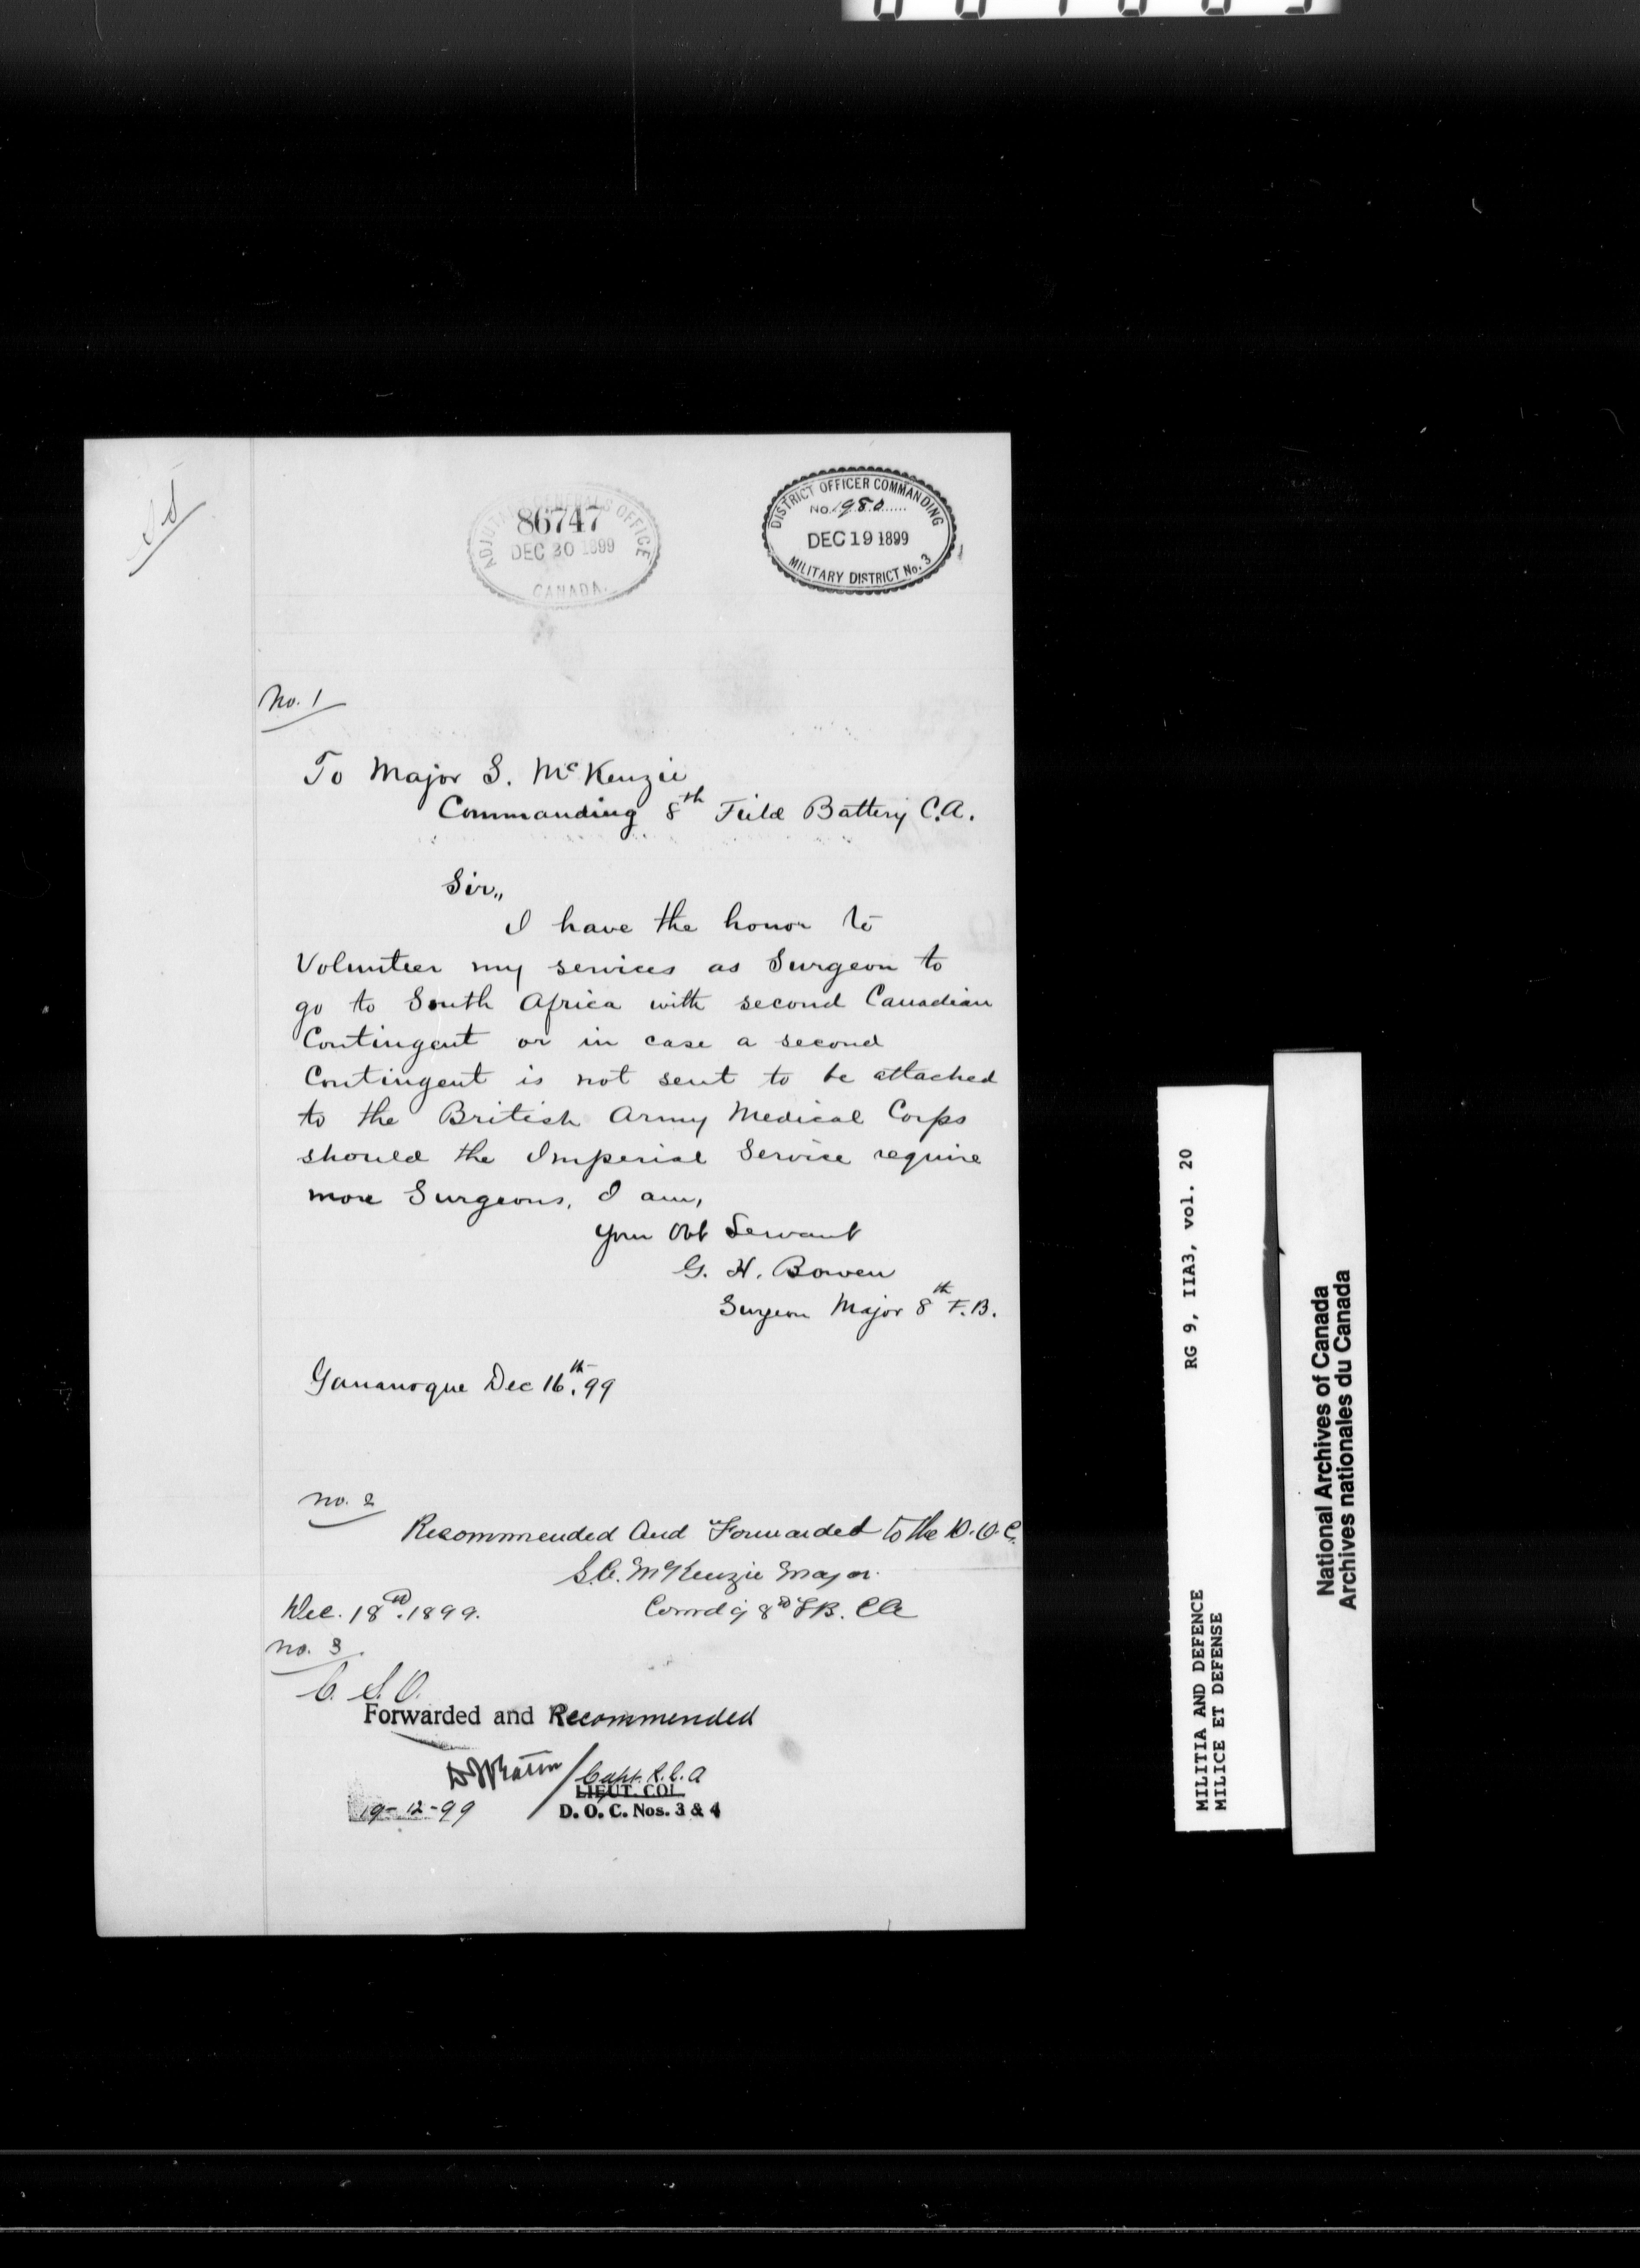 ADJUTANT GENERAL'S OFFICE
86747
DEC 20 1899
CANADA.
DISTRICT OFFICER COMMANDING
No. 1980
DEC 19 1899
MILITARY DISTRICT No. 3
No. 1
To Major S. McKenzie
Commanding 8th Field Battery C.A.
Sir,,
I have the honor to
Volunteer my services as Surgeon to
go to South Africa with second Canadian
Contingent or in case a second
Contingent is not sent to be attached
to the British Army Medical Corps
should the Imperial Service require
more Surgeons, I am,
Your Obt Servant
G. H. Bowen
Surgeon Major 8th F.B.
Gananoque Dec 16th. 99
No. 2
Recommended and Forwarded to the D.O.C.
S.A. McKenzie Major
Comdg 8th F.B. CA
Dec. 18th. 1899.
No. 3
C. S. O.
Forwarded and Recommended
Capt. R.C.A
LIEUT. COL.
19-12-99
D. O. C. Nos. 3 & 4
RG 9, IIA3, vol. 20
MILITIA AND DEFENCE
MILICE ET DEFENSE
National Archives of Canada
Archives nationales du Canada